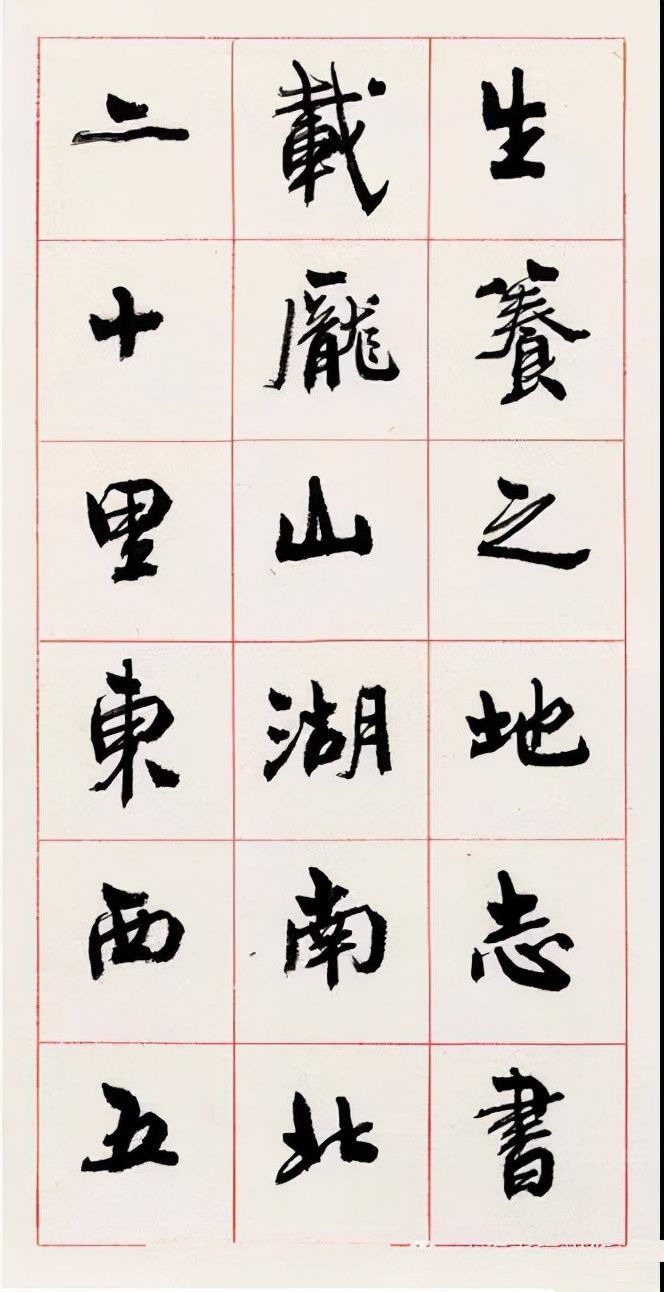 生養之地志書
載龎山湖南北
二十里東西五